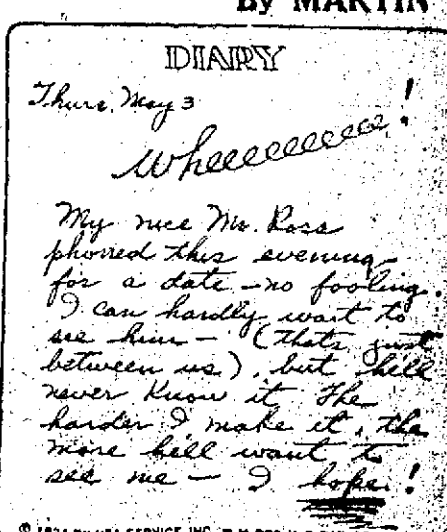 By MARTIN
DIARY
Thurs. May 3
Wheeeeeeeeee!
My nice Mr. Ross
phoned this evening
for a date - no fooling.
I can hardly wait to
see him - (thats just
between us), but he'll
never know it. The
harder I make it, the
more he'll want to
see me - I hope!
© 1934 BY NEA SERVICE, INC.